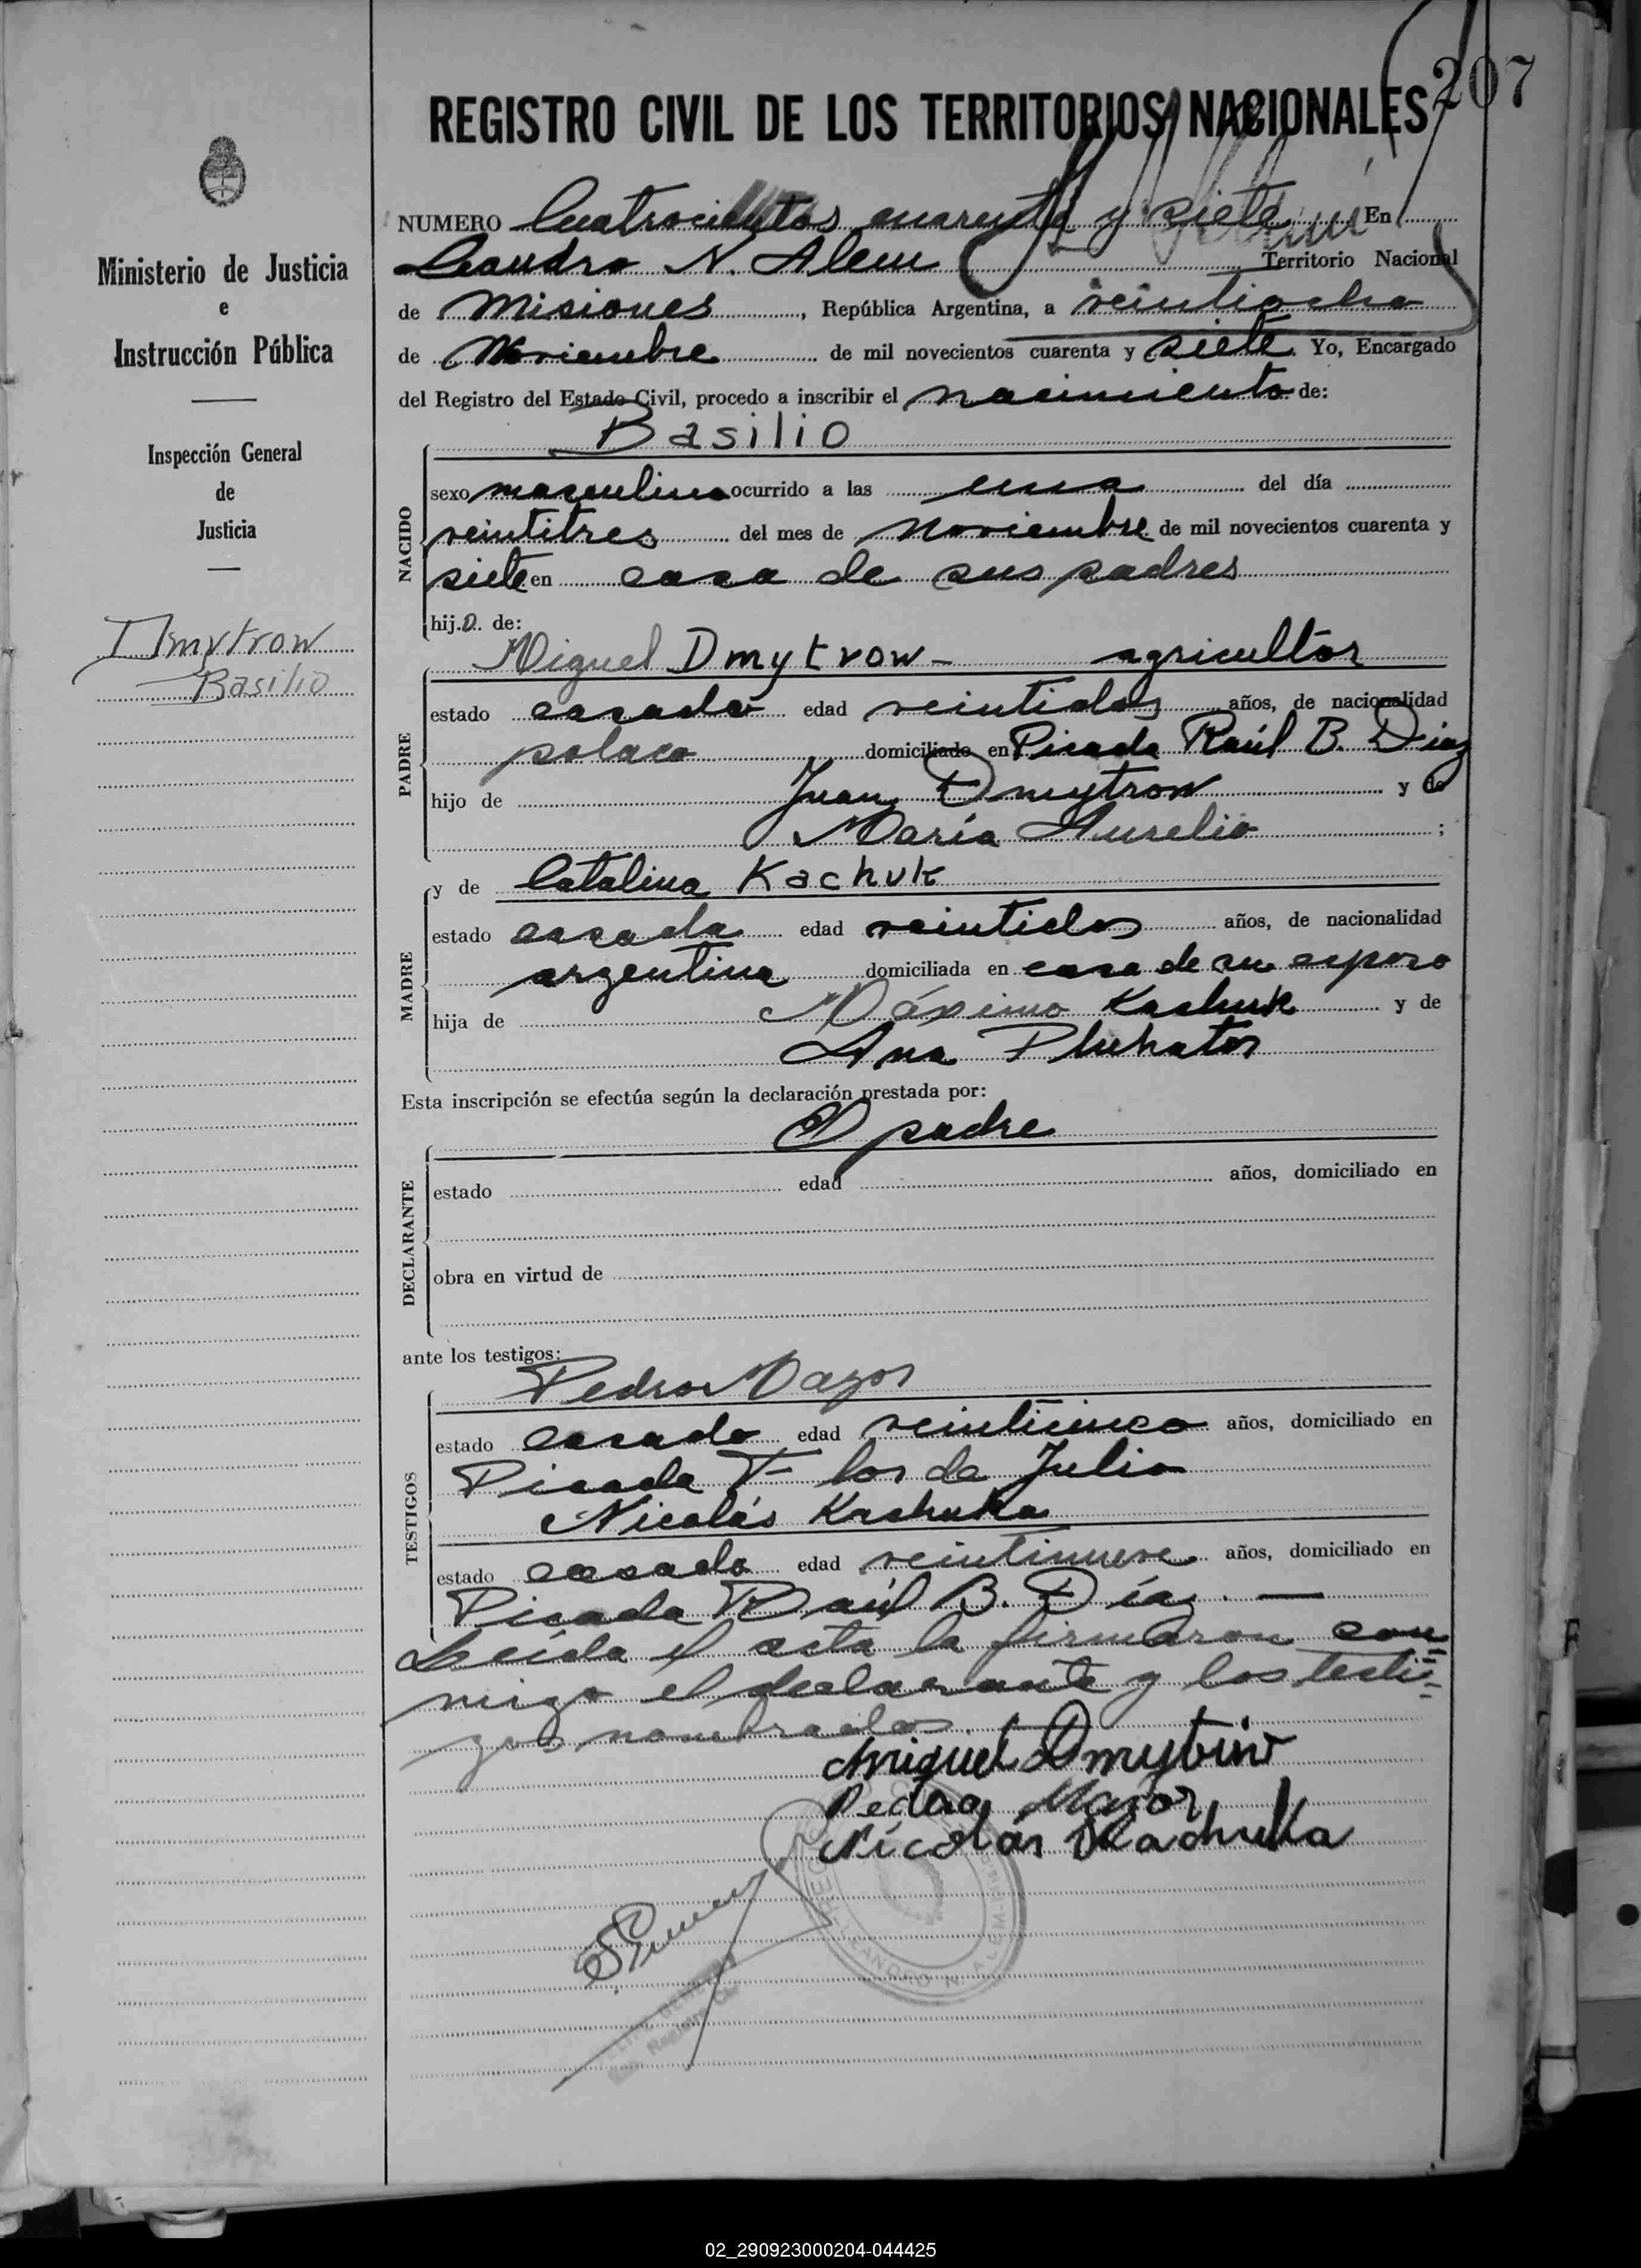 207
REGISTRO CIVIL DE LOS TERRITORIOS NACIONALES
Ministerio de Justicia
e
Instrucción Pública
Inspección General
de
Justicia
Dmytrow
Basilio
NUMERO Cuatrocientos cuarenta y siete En
Leandro N. Alem Territorio Nacional
de Misiones, República Argentina, a veintiocho
de Noviembre de mil novecientos cuarenta y siete. Yo, Encargado
del Registro del Estado Civil, procedo a inscribir el nacimiento de:
Basilio
NACIDO
sexo masculino ocurrido a las una del día
veintitres del mes de Noviembre de mil novecientos cuarenta y
siete en casa de sus padres
hijo de:
Miguel Dmytrow- agricultor
PADRE
estado casado edad veintidos años, de nacionalidad
polaca domiciliado en Picada Raúl B. Diaz
hijo de Juan Dmytrow y de
María Aurelia;
MADRE
y de Catalina Kachuk
estado casada edad veintidos años, de nacionalidad
argentina domiciliada en casa de su esposo
hija de Máximo Kachuk y de
Ana
Esta inscripción se efectúa según la declaración prestada por:
El padre
DECLARANTE
estado edad años, domiciliado en
obra en virtud de
ante los testigos:
Pedro Mazor
TESTIGOS
estado casado edad veinticinco años, domiciliado en
Picada Flor de Julio
Nicolás Kachuka
estado casado edad veintinueve años, domiciliado en
Picada Raúl B. Díaz. —
Leída el acta la firmaron con=
migo el declarante y los testi=
gos nombrados.
Miguel Dmytriw
Pedro Mazor
Nicolás Kachuka
LEANDRO N. ALEM
02_290923000204-044425